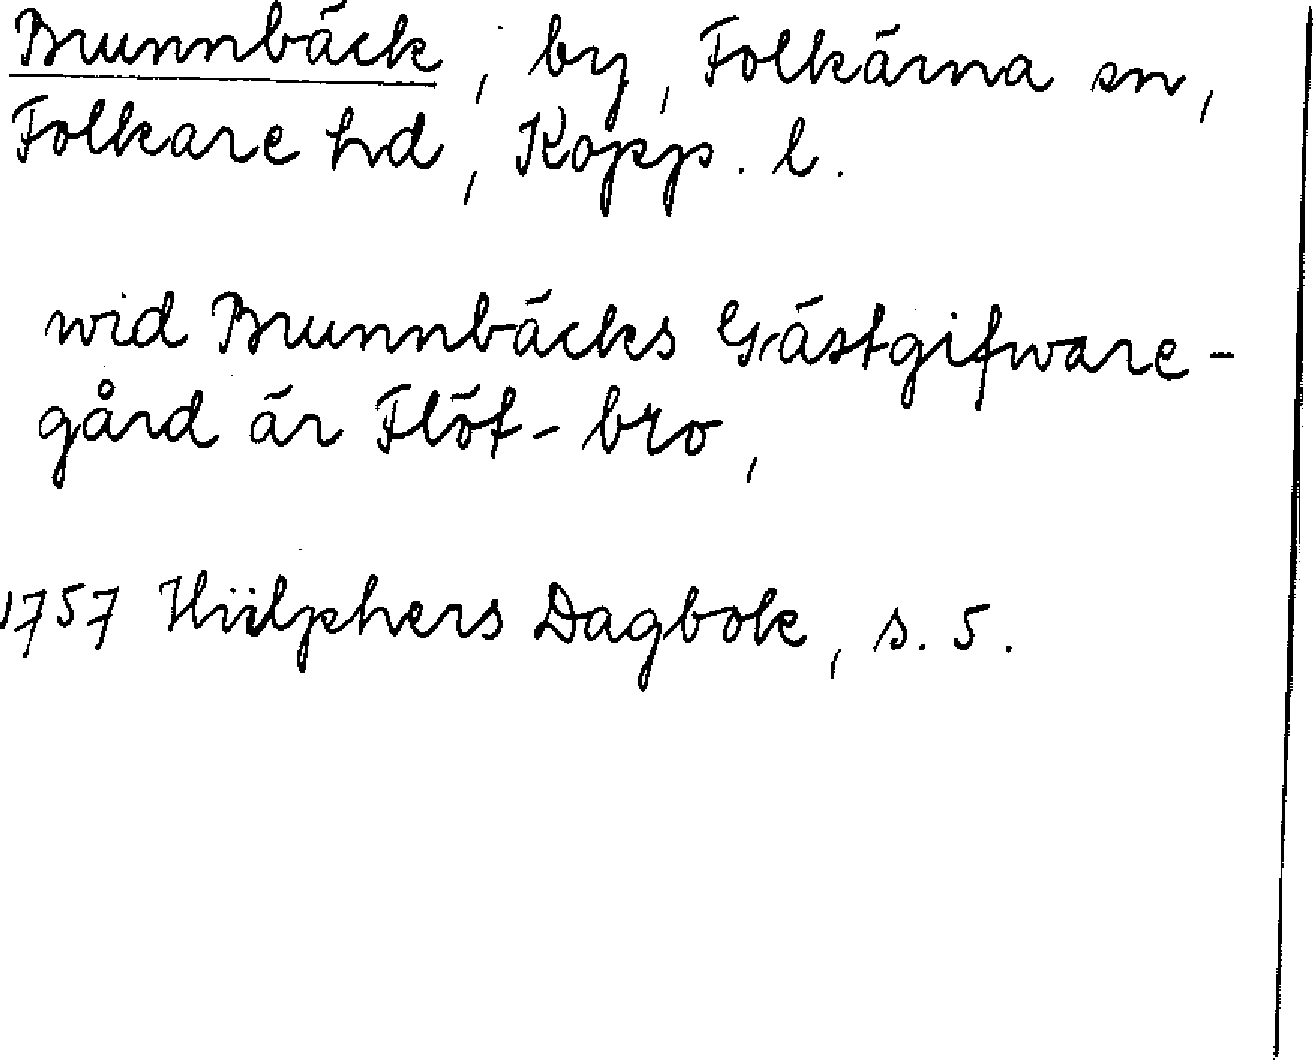 Brunnbäck, by, Folkärna sn,
Folkare hd, Kopp. l.
wid Brunnbäcks Gästgifware-
gård är Flöt-bro,
1757 Hülphers Dagbok, s. 5.